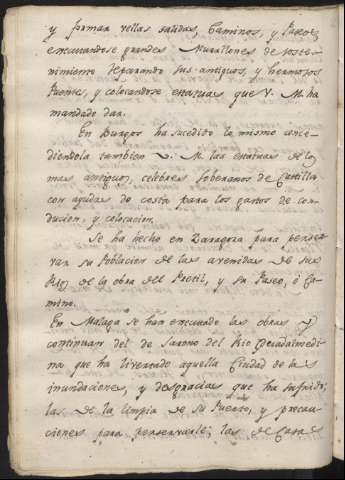 y formar vellas salidas, Caminos, y Paseos
executandose grandes Murallones de soste-
nimiento reparando sus antiguos, y hermosos
Puentes, y colocandose estatuas que V. M. ha
mandado dar.
En Burgos ha sucedido lo mismo conce-
diendola tambien V. M. las estatuas de los
mas antiguos, celebres soberanos de Castilla
con ayudas de costa para los gastos de con-
ducion, y colocacion.
Se ha hecho en Zaragoza para preser-
var su Poblacion de las avenidas de sus
Rios de la obra del Pretil, y su Paseo, ó Ca-
mino.
En Malaga se han executado las obras y
continuan del de Guadalmedi-
na que ha livertado aquella Ciudad de las
inundaciones, y desgracias que ha sufrido;
las de la limpia de su Puerto, y precau-
ciones para preservarle; las de